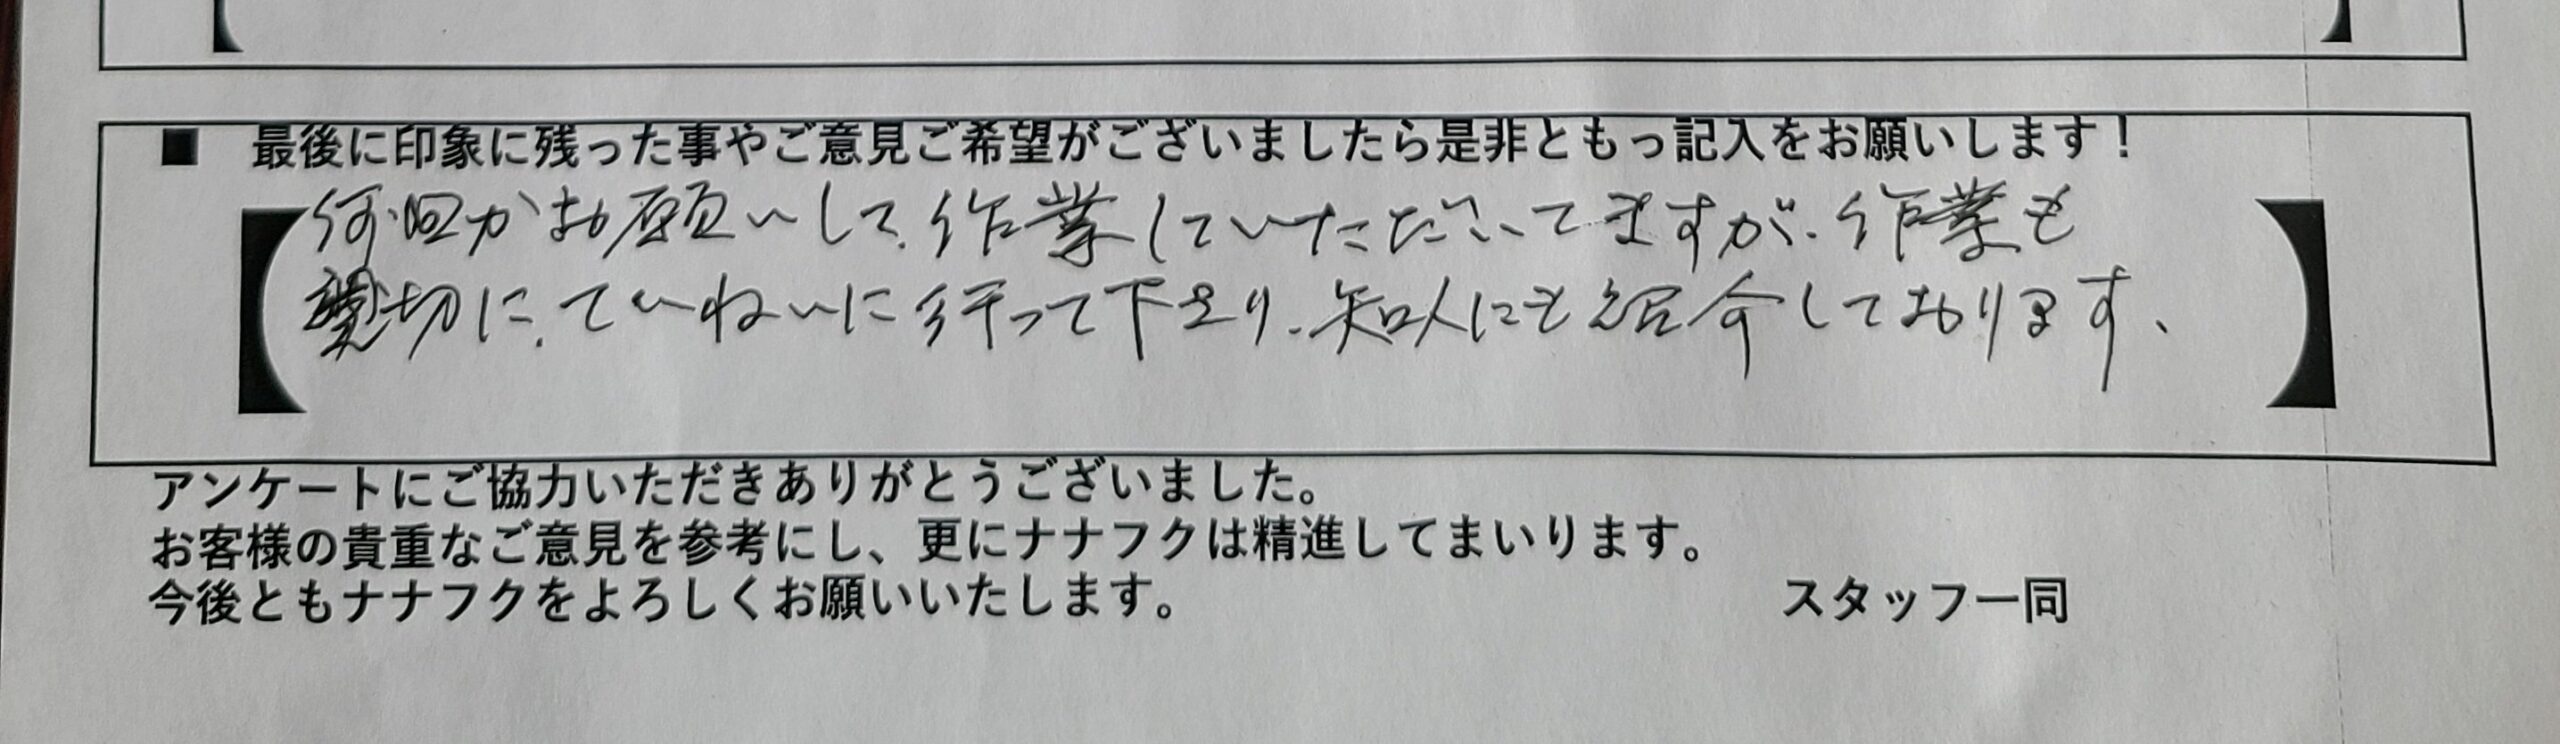 ■ 最後に印象に残った事やご意見ご希望がございましたら是非ともっ記入をお願いします！
何回かお願いして、作業していただいてますが、作業も
親切に、ていねいに行って下さり、知人にも紹介しております、
アンケートにご協力いただきありがとうございました。
お客様の貴重なご意見を参考にし、更にナナフクは精進してまいります。
今後ともナナフクをよろしくお願いいたします。
スタッフ一同